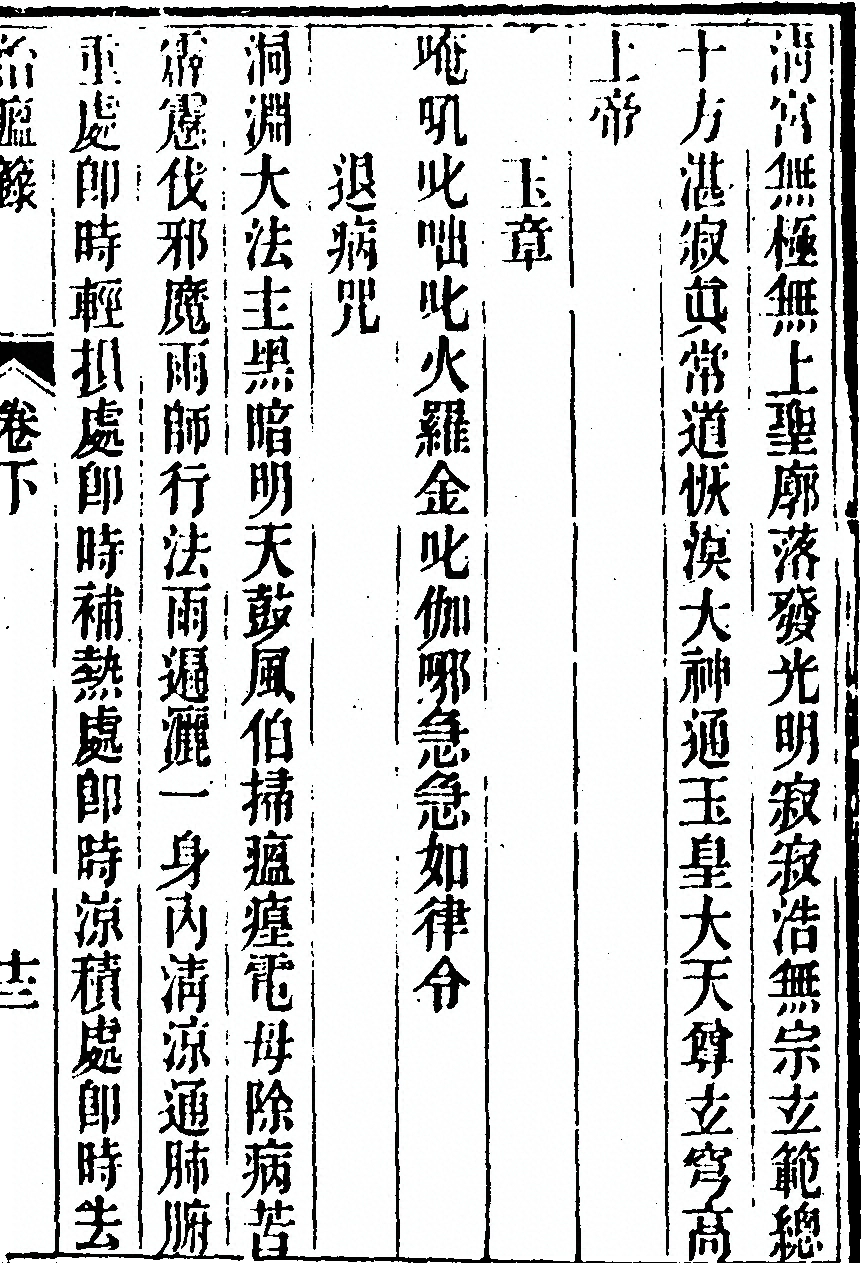 清宮無極無上聖廓落發光明寂寂浩無宗玄範總
十方湛寂眞常道恢漠大神通玉皇大天尊玄穹高
上帝
玉章
唵吼叱咄叱火羅金叱伽哪急急如律令
退病咒
洞淵大法主黑暗明天鼓風伯掃瘟㾏電母除病苦
霹靂伐邪魔雨師行法雨遍灑一身內淸涼通肺腑
重處卽時輕損處卽時補熱處卽時涼積處卽時去
治瘟籙 卷下 十三